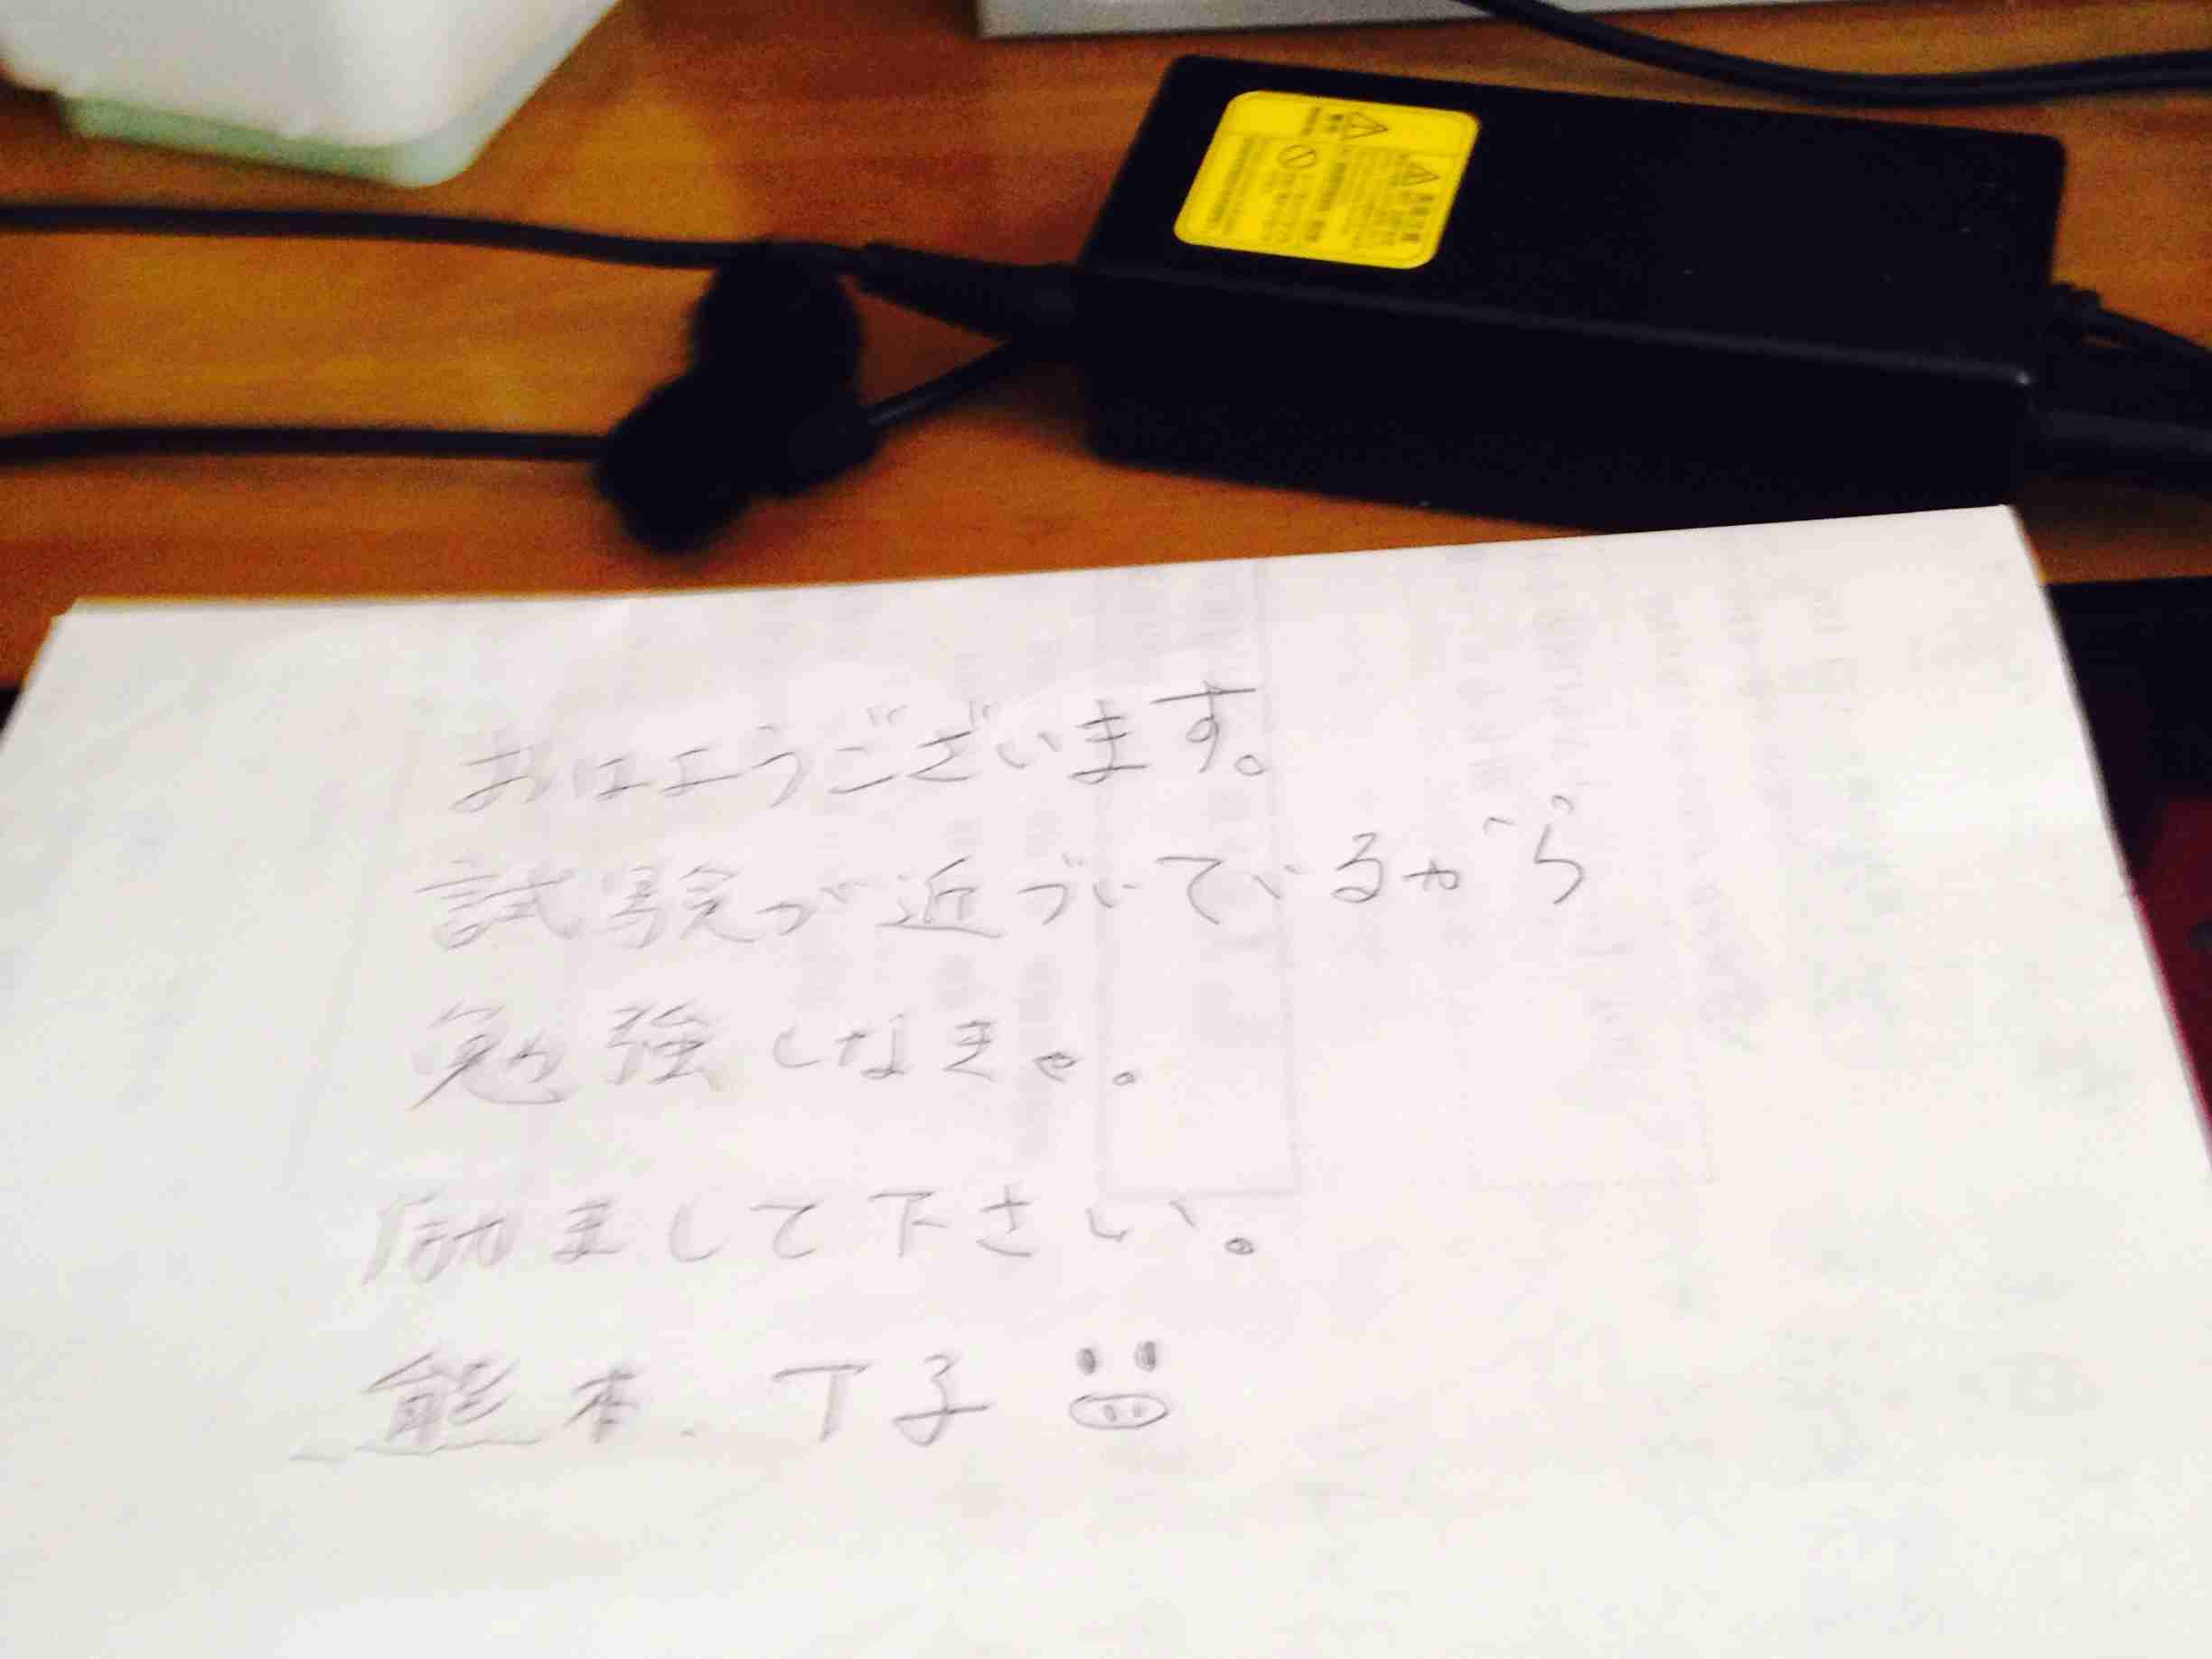 おはようございます。
試験が近づいているから
勉強しなきゃ。
励まして下さい。
熊本. 丁子